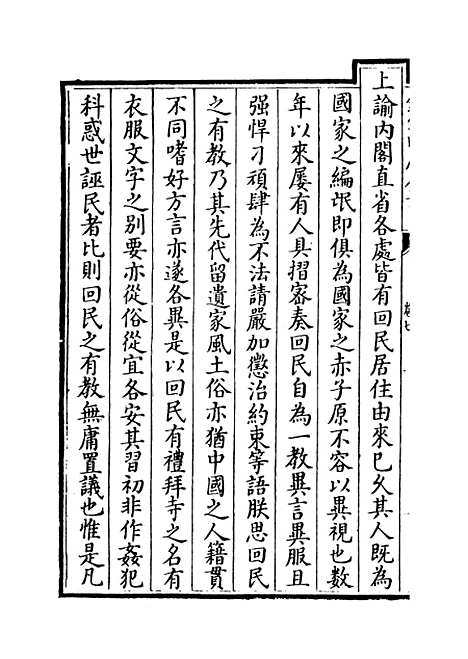 上諭内閣直省各處皆有回民居住由來已久其人既為
國家之編氓即俱為國家之赤子原不容以異視也數
年以來屢有人具摺密奏回民自為一教異言異服且
强悍刁頑肆為不法請嚴加懲治約束等語朕思回民
之有教乃其先代留遺家風土俗亦猶中國之人籍貫
不同嗜好方言亦遂各異是以回民有禮拜寺之名有
衣服文字之别要亦從俗從宜各安其習初非作姦犯
科惑世誣民者比則回民之有教無庸置議也惟是凡